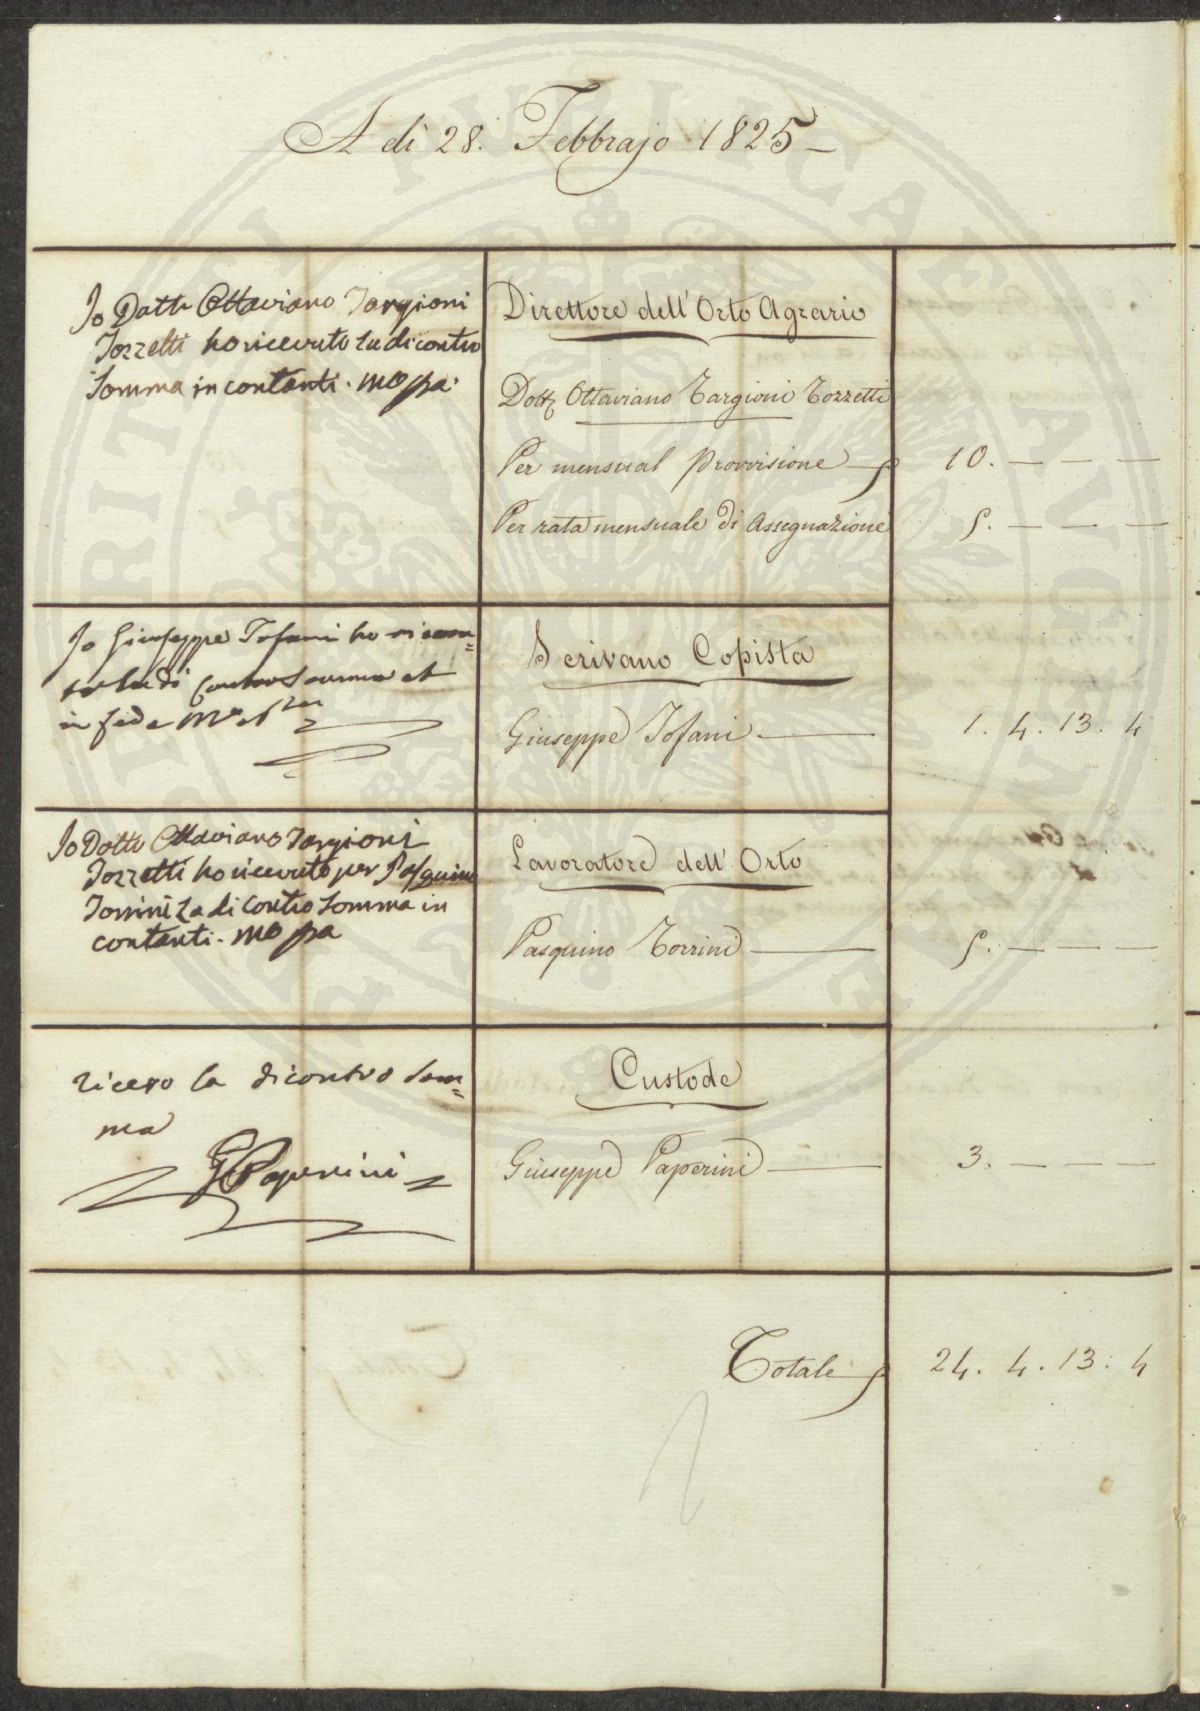 A di 28. Febbrajo 1825 —
Io Dottr Ottaviano Targioni
Tozzetti ho ricevuto la dicontro
Somma in contanti. mo ppa.
Direttore dell' Orto Agrario
Dott Ottaviano Targioni Tozzetti
Per mensual Provvisione 10. — — —
Per rata mensuale di Assegnazione 5. — — —
Io Giuseppe Tofani ho ricevu=
to la di Contro Somma et
in fede Mo
Scrivano Copista
Giuseppe Tofani — 1. 4. 13. 4
Io Dottr Ottaviano Targioni
Tozzetti ho ricevuto per Pasquino
Torrini La di Contro Somma in
contanti. mo ppa
Lavoratore dell' Orto
Pasquino Torrini — 5. — — —
ricevo la dicontro Som=
ma
G Paperini =
Custode
Giuseppe Paperini — 3. — — —
Totale 24. 4. 13. 4